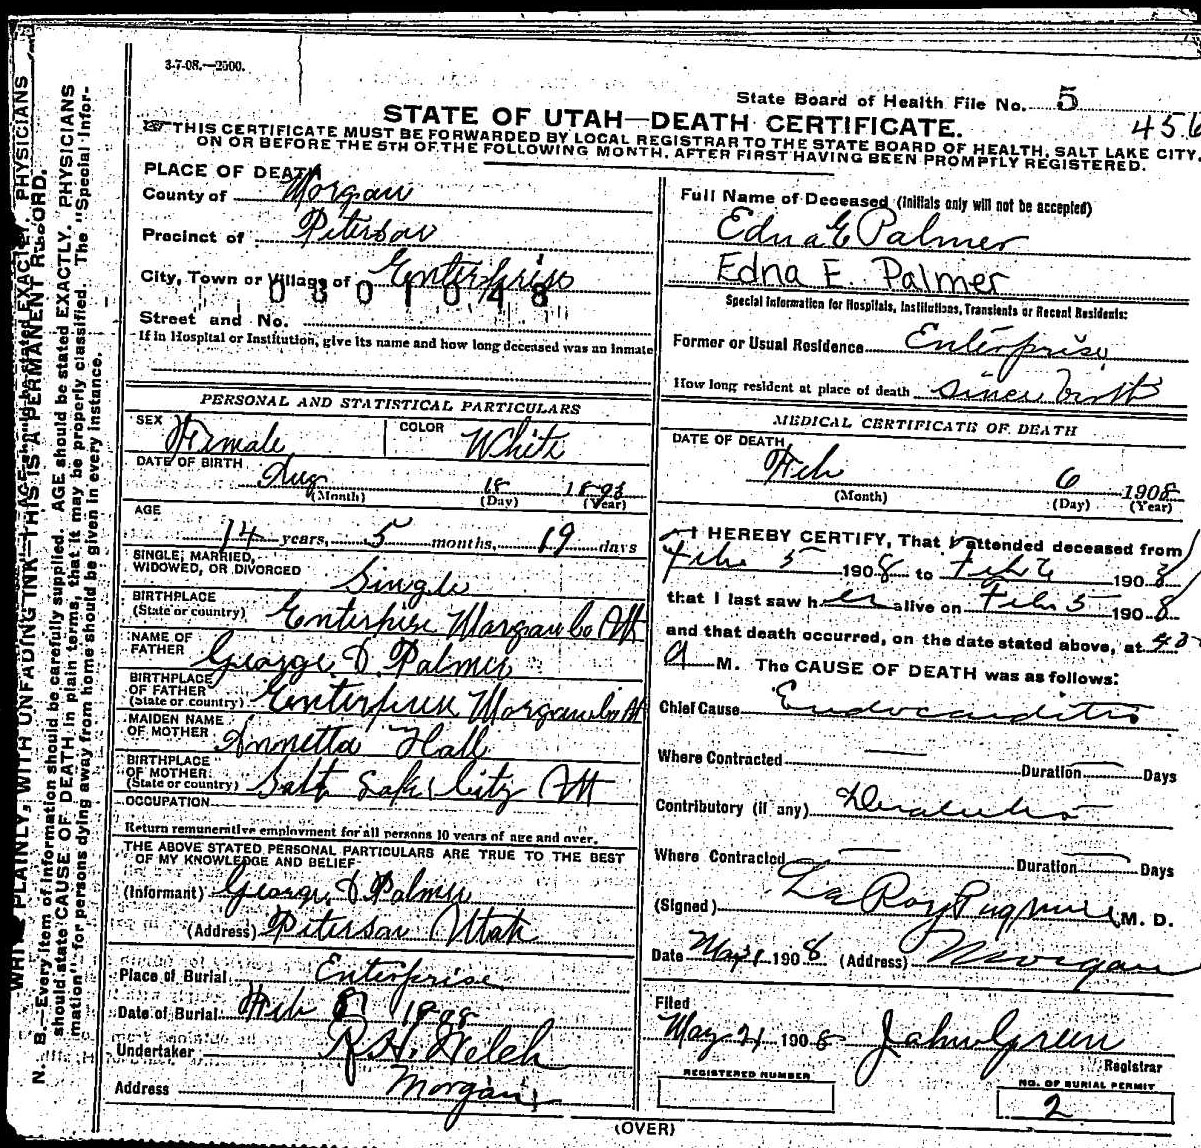 3-7-08.—2500.
State Board of Health File No. 5
456
STATE OF UTAH—DEATH CERTIFICATE.
THIS CERTIFICATE MUST BE FORWARDED BY LOCAL REGISTRAR TO THE STATE BOARD OF HEALTH, SALT LAKE CITY,
ON OR BEFORE THE 5TH OF THE FOLLOWING MONTH, AFTER FIRST HAVING BEEN PROMPTLY REGISTERED.
PLACE OF DEATH
County of Morgan
Precinct of Peterson
City, Town or Village of Enterprise
0301048
Street and No.
If in Hospital or Institution, give its name and how long deceased was an inmate
PERSONAL AND STATISTICAL PARTICULARS
SEX Female COLOR White
DATE OF BIRTH Aug 18 1893
(Month) (Day) (Year)
AGE
14 years, 5 months, 19 days
SINGLE, MARRIED,
WIDOWED, OR DIVORCED Single
BIRTHPLACE
(State or country) Enterprise Morgan Co Ut
NAME OF
FATHER George D. Palmer
BIRTHPLACE
OF FATHER
(State or country) Enterprise Morgan Co Ut
MAIDEN NAME
OF MOTHER Annetta Hall
BIRTHPLACE
OF MOTHER
(State or country) Salt Lake City Ut
OCCUPATION
Return remunerative employment for all persons 10 years of age and over.
THE ABOVE STATED PERSONAL PARTICULARS ARE TRUE TO THE BEST
OF MY KNOWLEDGE AND BELIEF
(Informant) George D. Palmer
(Address) Peterson Utah
Place of Burial Enterprise
Date of Burial Feb 8 1908
Undertaker R. H. Welch
Address Morgan
Full Name of Deceased (Initials only will not be accepted)
Edna E Palmer
Edna E. Palmer
Special Information for Hospitals, Institutions, Transients or Recent Residents:
Former or Usual Residence Enterprise
How long resident at place of death since birth
MEDICAL CERTIFICATE OF DEATH
DATE OF DEATH
Feb 6 1908
(Month) (Day) (Year)
I HEREBY CERTIFY, That I attended deceased from
Feb 5 1908 to Feb 6 1908
that I last saw her alive on Feb 5 1908
and that death occurred, on the date stated above, at
A M. The CAUSE OF DEATH was as follows:
Chief Cause Endocarditis
Where Contracted — Duration — Days
Contributory (if any)
Where Contracted — Duration — Days
(Signed) M. D.
Date 1908 (Address) Morgan
Filed
May 21 1908 John Green
Registrar
REGISTERED NUMBER
NO. OF BURIAL PERMIT
2
(OVER)
PLAINLY, WITH UNFADING INK—THIS IS A PERMANENT RECORD.
N. B.—Every item of information should be carefully supplied. AGE should be stated EXACTLY. PHYSICIANS
should state CAUSE OF DEATH in plain terms, that it may be properly classified. The "Special Infor-
mation" for persons dying away from home should be given in every instance.